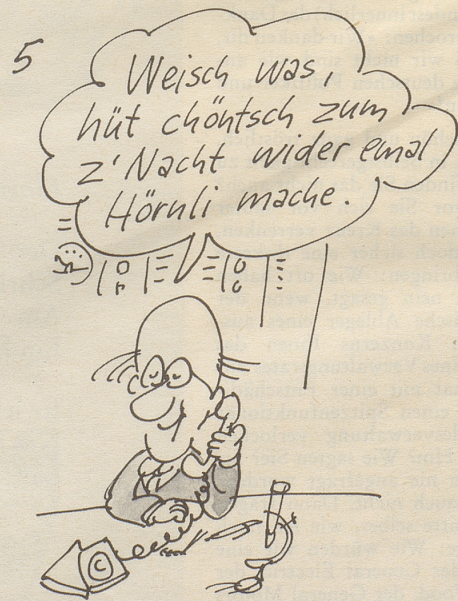 5
Weisch was,
hüt chöntsch zum
z'Nacht wider emal
Hörnli mache.
C